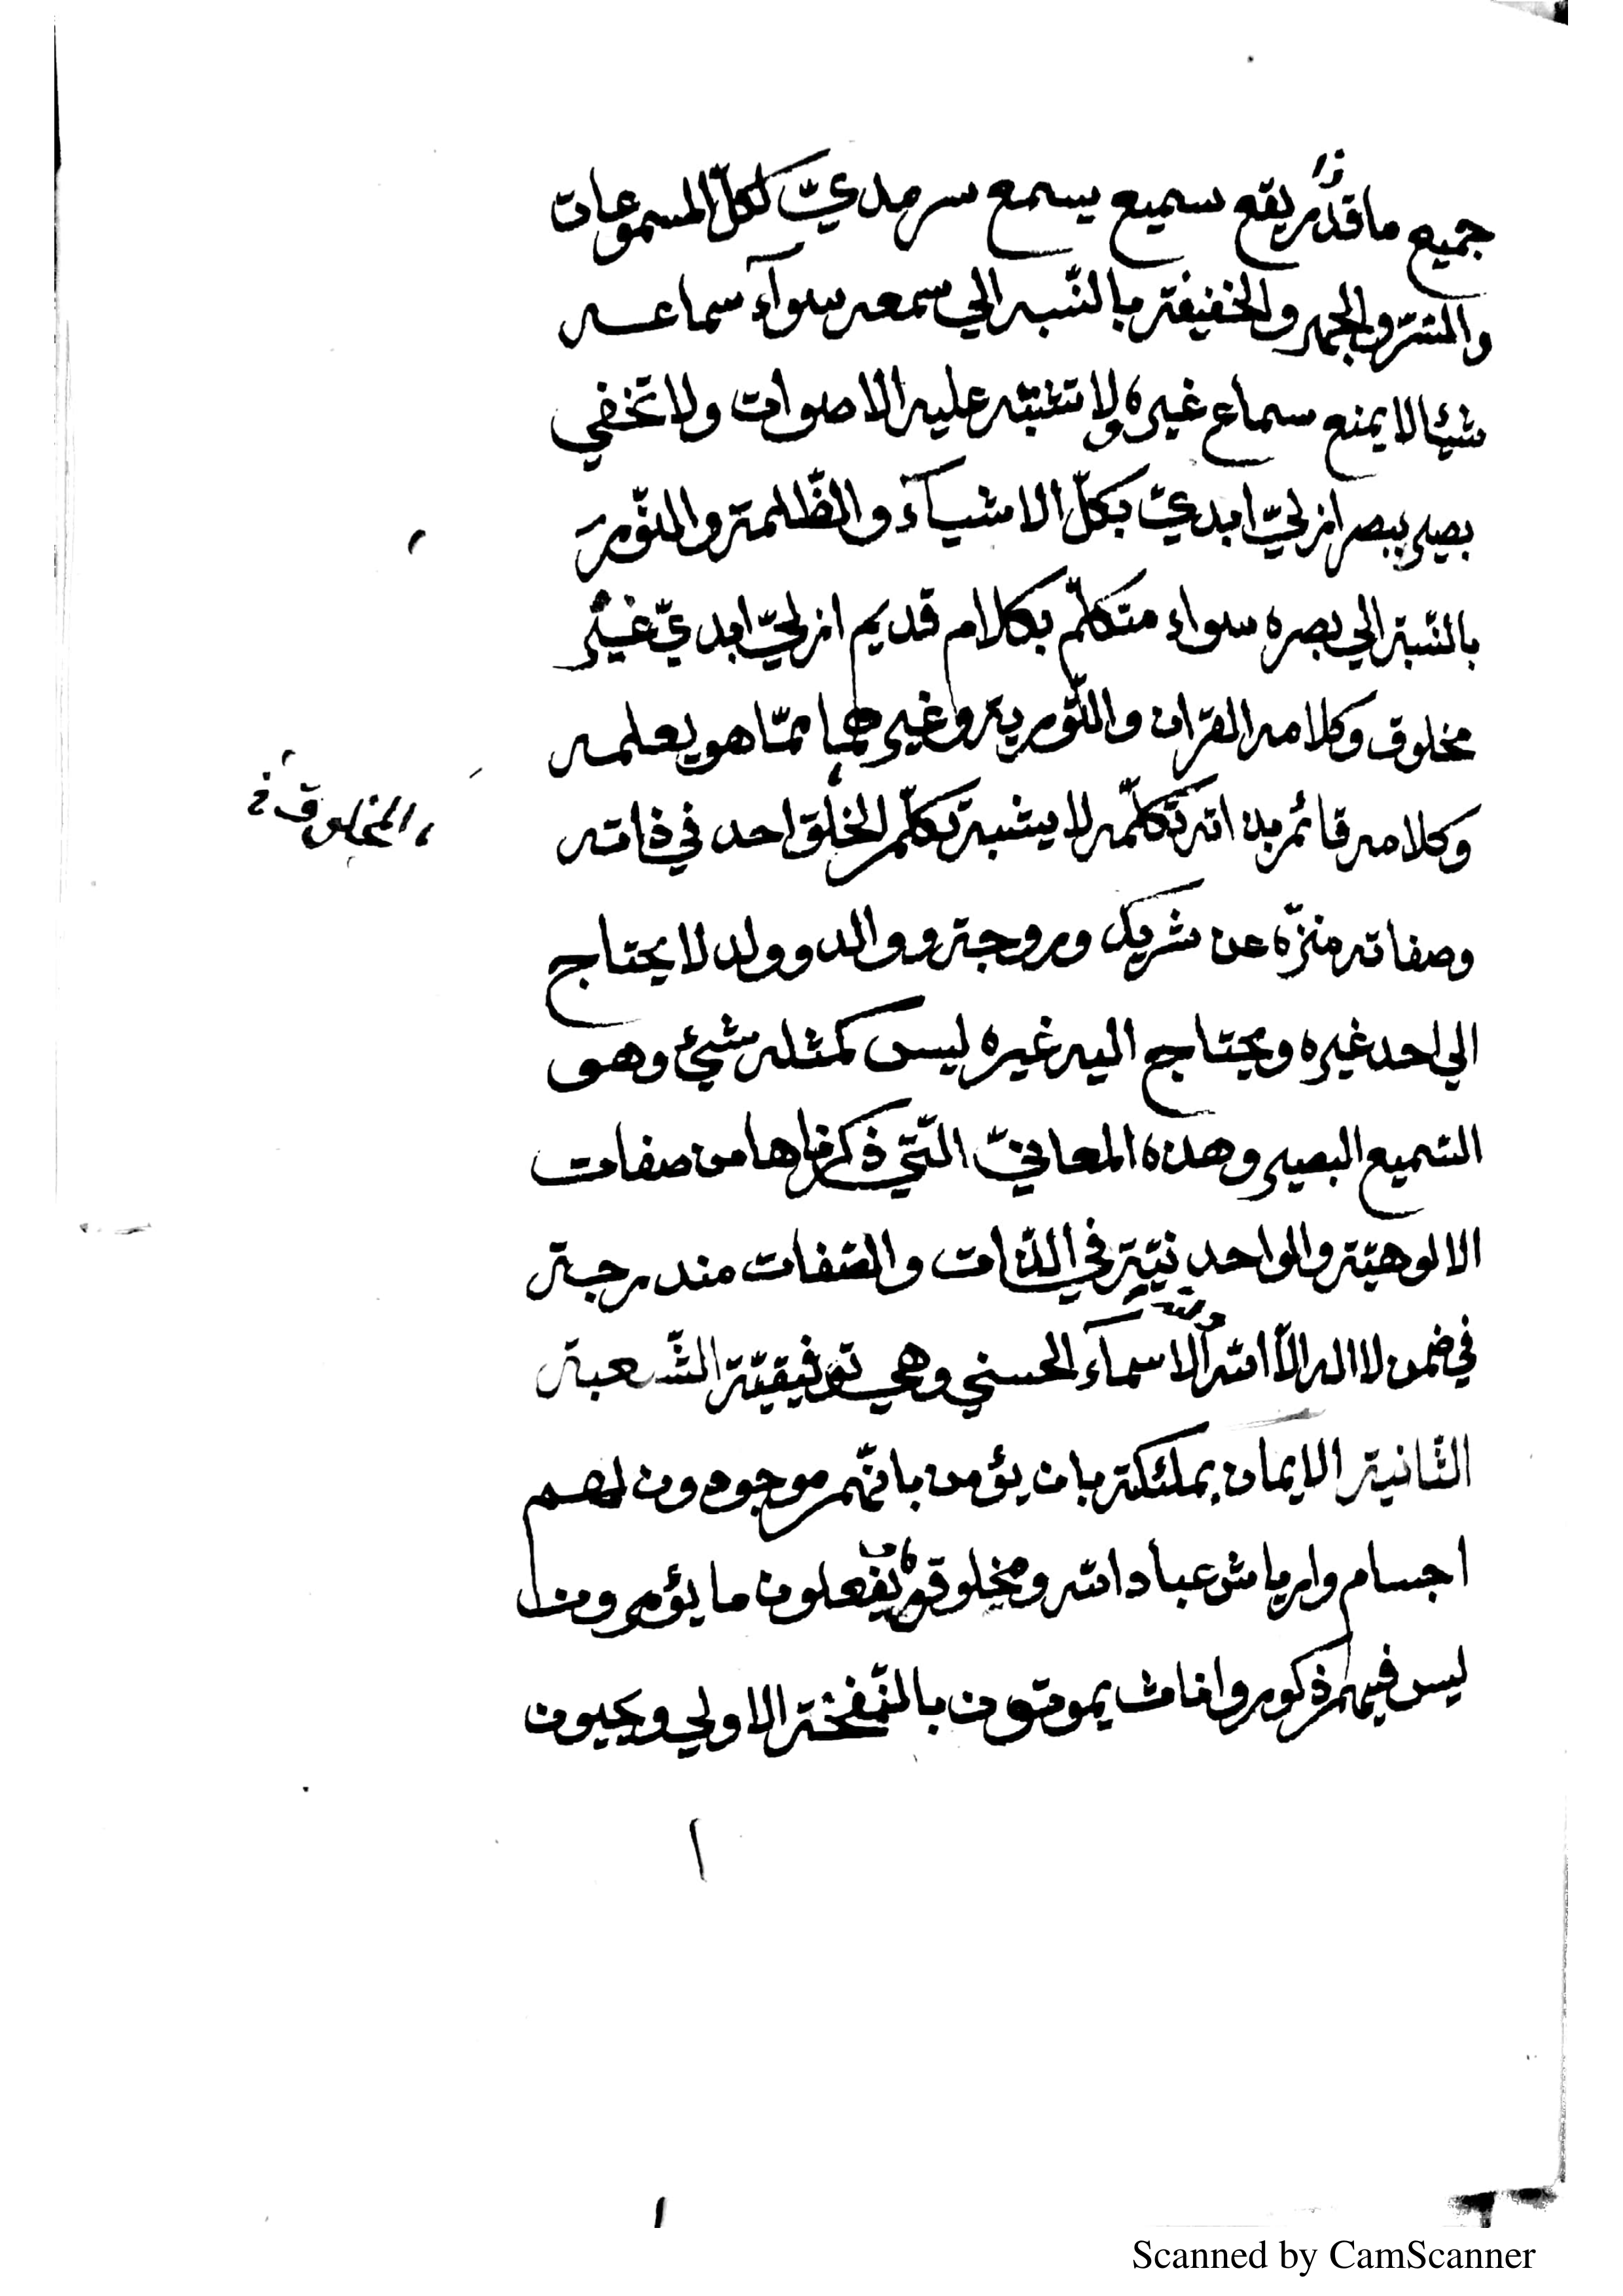 جميع ما قدّر يقع سميع يسمع سرمديّ لكلّ المسموعات
والسّرّ والجهر والخفيفة بالنّسبه الي سمعه سوآء سماعه
شيئا لا يمنع سماع غيره ولا تشتبّه عليه الاصوات ولا تخفي
بصير ببصر ازليّ ابديّ بكلّ الاشيآء والظّلمة والنّور
بالنّسبة الي بصره سواء متكلّم بكلام قديم ازليّ ابديّ غير
مخلوق وكلامه القران والتّورية وغيرهما ممّا هو يعلمه
وكلامه قائم بذاته تكلّمه لا يشبه تكلّم الخلق احد في ذاته
المخلوقة
وصفاته منزّه عن شريك وزوجة ووالد وولد لا يحتاج
الي احد غيره ويحتاج اليه غيره ليس كمثله شيئ وهو
السّميع البصير وهذه المعانيّ الّتي ذكرناها من صفات
الالوهيّة والواحدنيّة في الذّات والصّفات مندرجة
في ضمن لا اله الاّ الله ولله الاسمآء الحسني وهي توفيقيّة الشّعبة
الثّانية الايمان بملئكة بان يؤمن بانّهم موجودون لهم
اجسام وارياش عباد الله ومخلوقه يفعلون ما يؤمرون
ليس فيهم ذكور واناث يموتون بالنّفخة الاولي ويحيون
Scanned by CamScanner